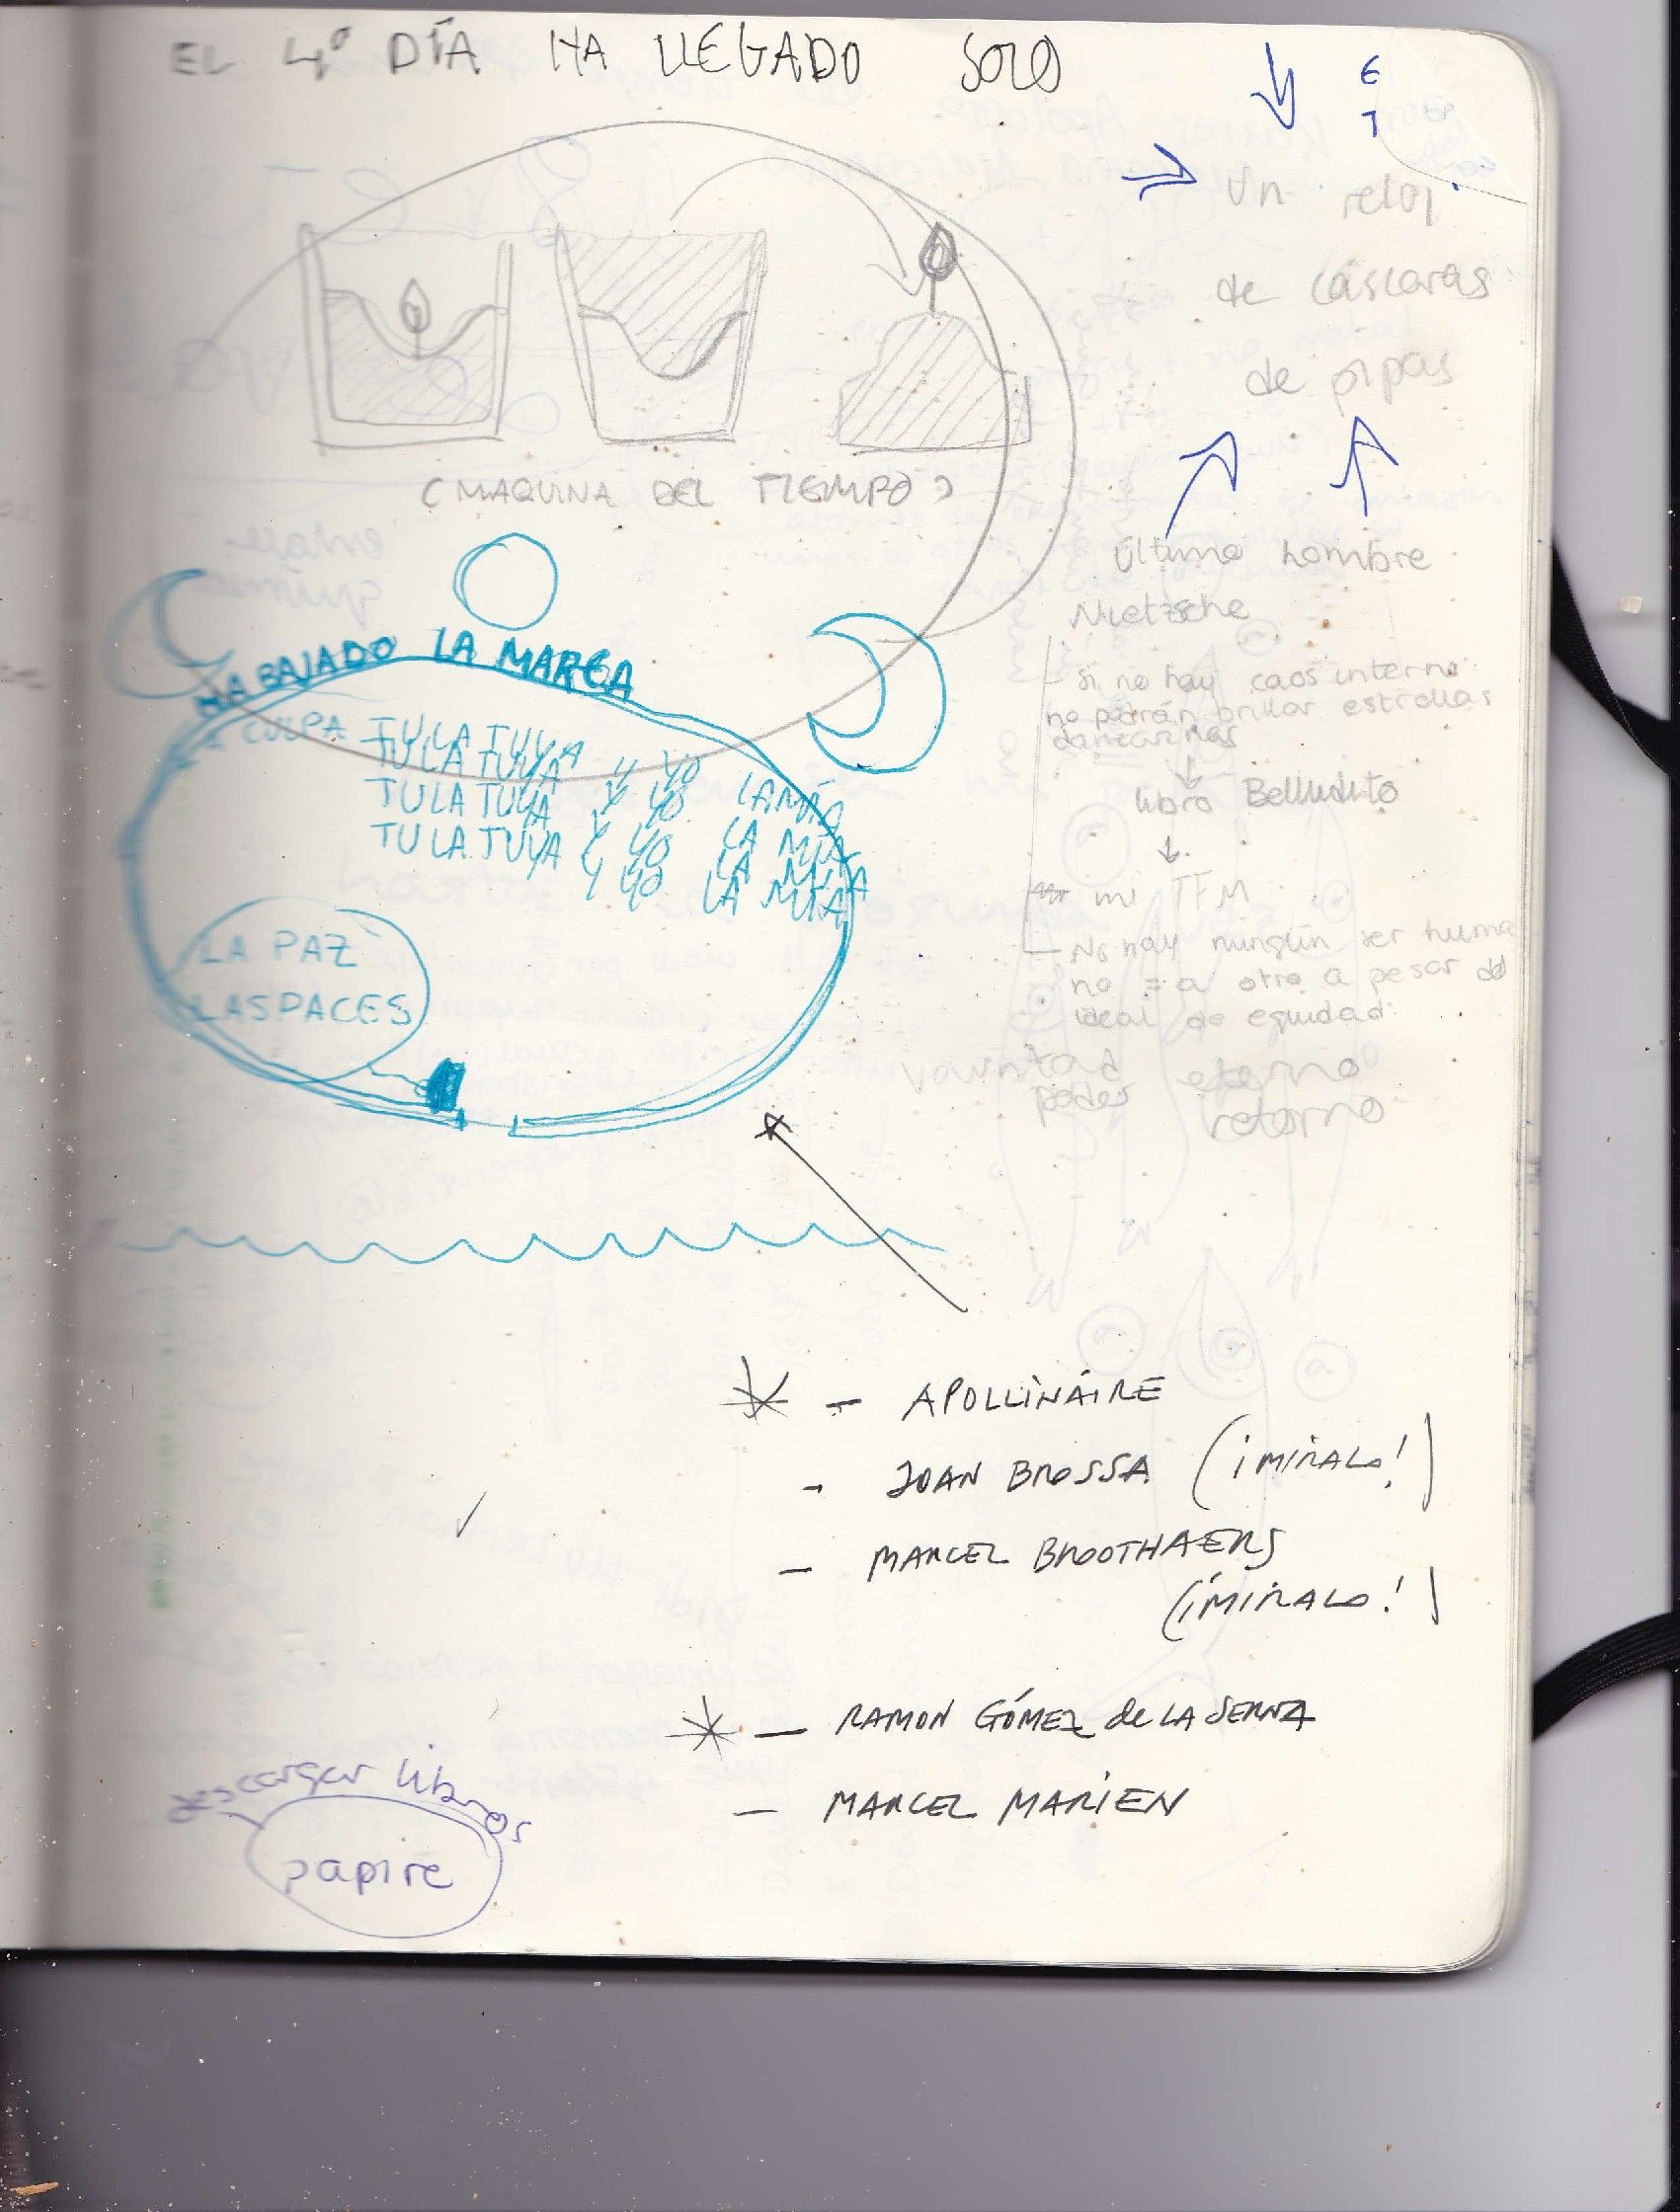 EL 4º DÍA HA LLEGADO SOLO
un reloj
de cáscaras
de pipas
(MAQUINA DEL TIEMPO)
último hombre
Nietzsche
HA BAJADO LA MAREA
- Si no hay caos interno
no podrán brillar estrellas
danzarinas
CULPA TU LA TUYA
TU LA TUYA Y YO
TU LA TUYA Y YO LA MÍA
TU LA TUYA Y YO LA MÍA
Y YO LA MÍA
LA MÍA
libro
mi TFM
LA PAZ
LAS PACES
- No hay ningún ser huma
no = a otro a pesar del
ideal de equidad
voluntad eterno
poder retorno
- APOLLINAIRE
- JOAN BROSSA (¡MIRALO!)
- MARCEL BROOTHAERS
(¡MIRALO!)
- RAMON GÓMEZ de LA SERNA
- MARCEL MARIEN
descargar libros
papire